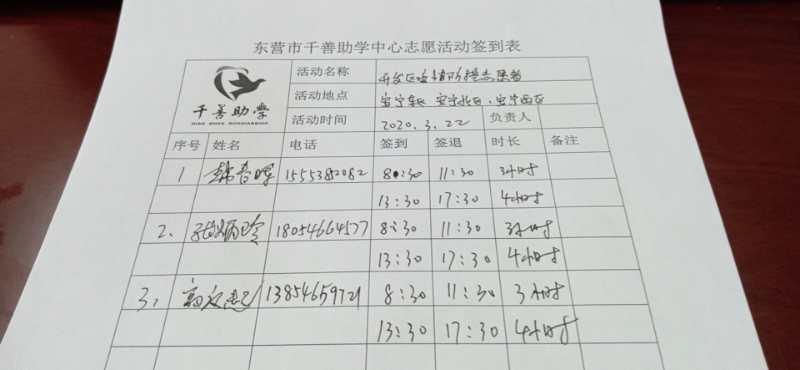 东营市千善助学中心志愿活动签到表
千善助学
活动名称
活动地点 安宁东区 安宁北区、安宁西区
活动时间 2020.3.22 负责人
序号 姓名 电话 签到 签退 时长 备注
1 1555382082 8:30 11:30 3小时
13:30 17:30 4小时
2、 18054664577 8:30 11:30 3小时
13:30 17:30 4小时
3、 13854659721 8:30 11:30 3小时
13:30 17:30 4小时